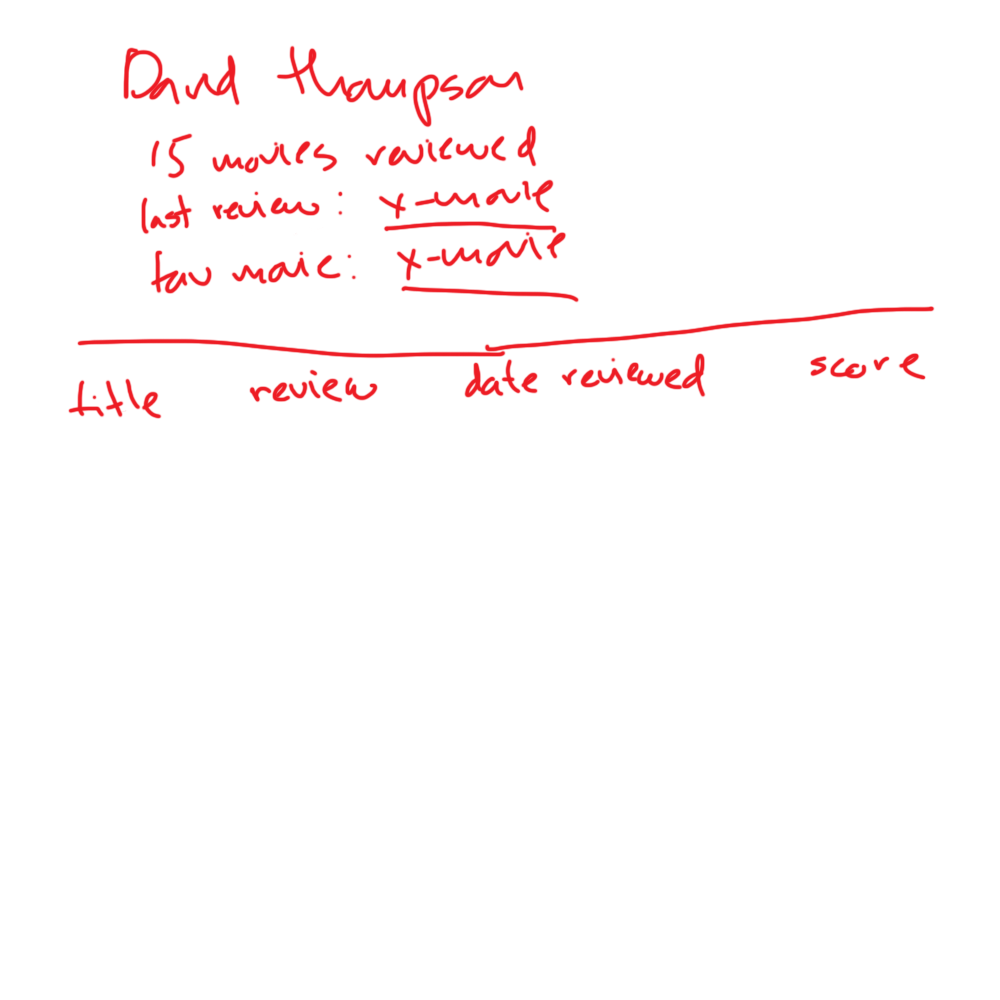 David thompson
15 movies reviewed
last review: x-movie
fav movie: x-movie
title review date reviewed score